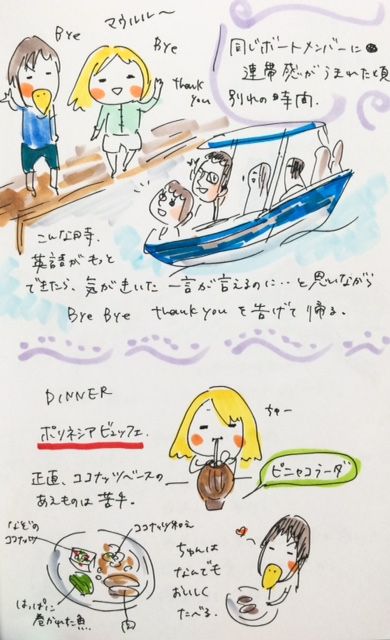 Bye
マウルル〜
Bye
thank you
同じボートメンバーに
連帯感がうまれた頃
別れの時間.
こんな時.
英語がもっと
できたら、気がきいた一言が言えるのに‥と思いながら
Bye Bye thank youを告げて帰る.
DINNER
ポリネシアビュッフェ.
ちゅー
正直、ココナッツベースの
あえものは苦手.
ピニャコラーダ
なぞの
ココナッツ
ココナッツ和え
はっぱに
巻かれた魚
ちゅんは
なんでも
おいしく
たべる.